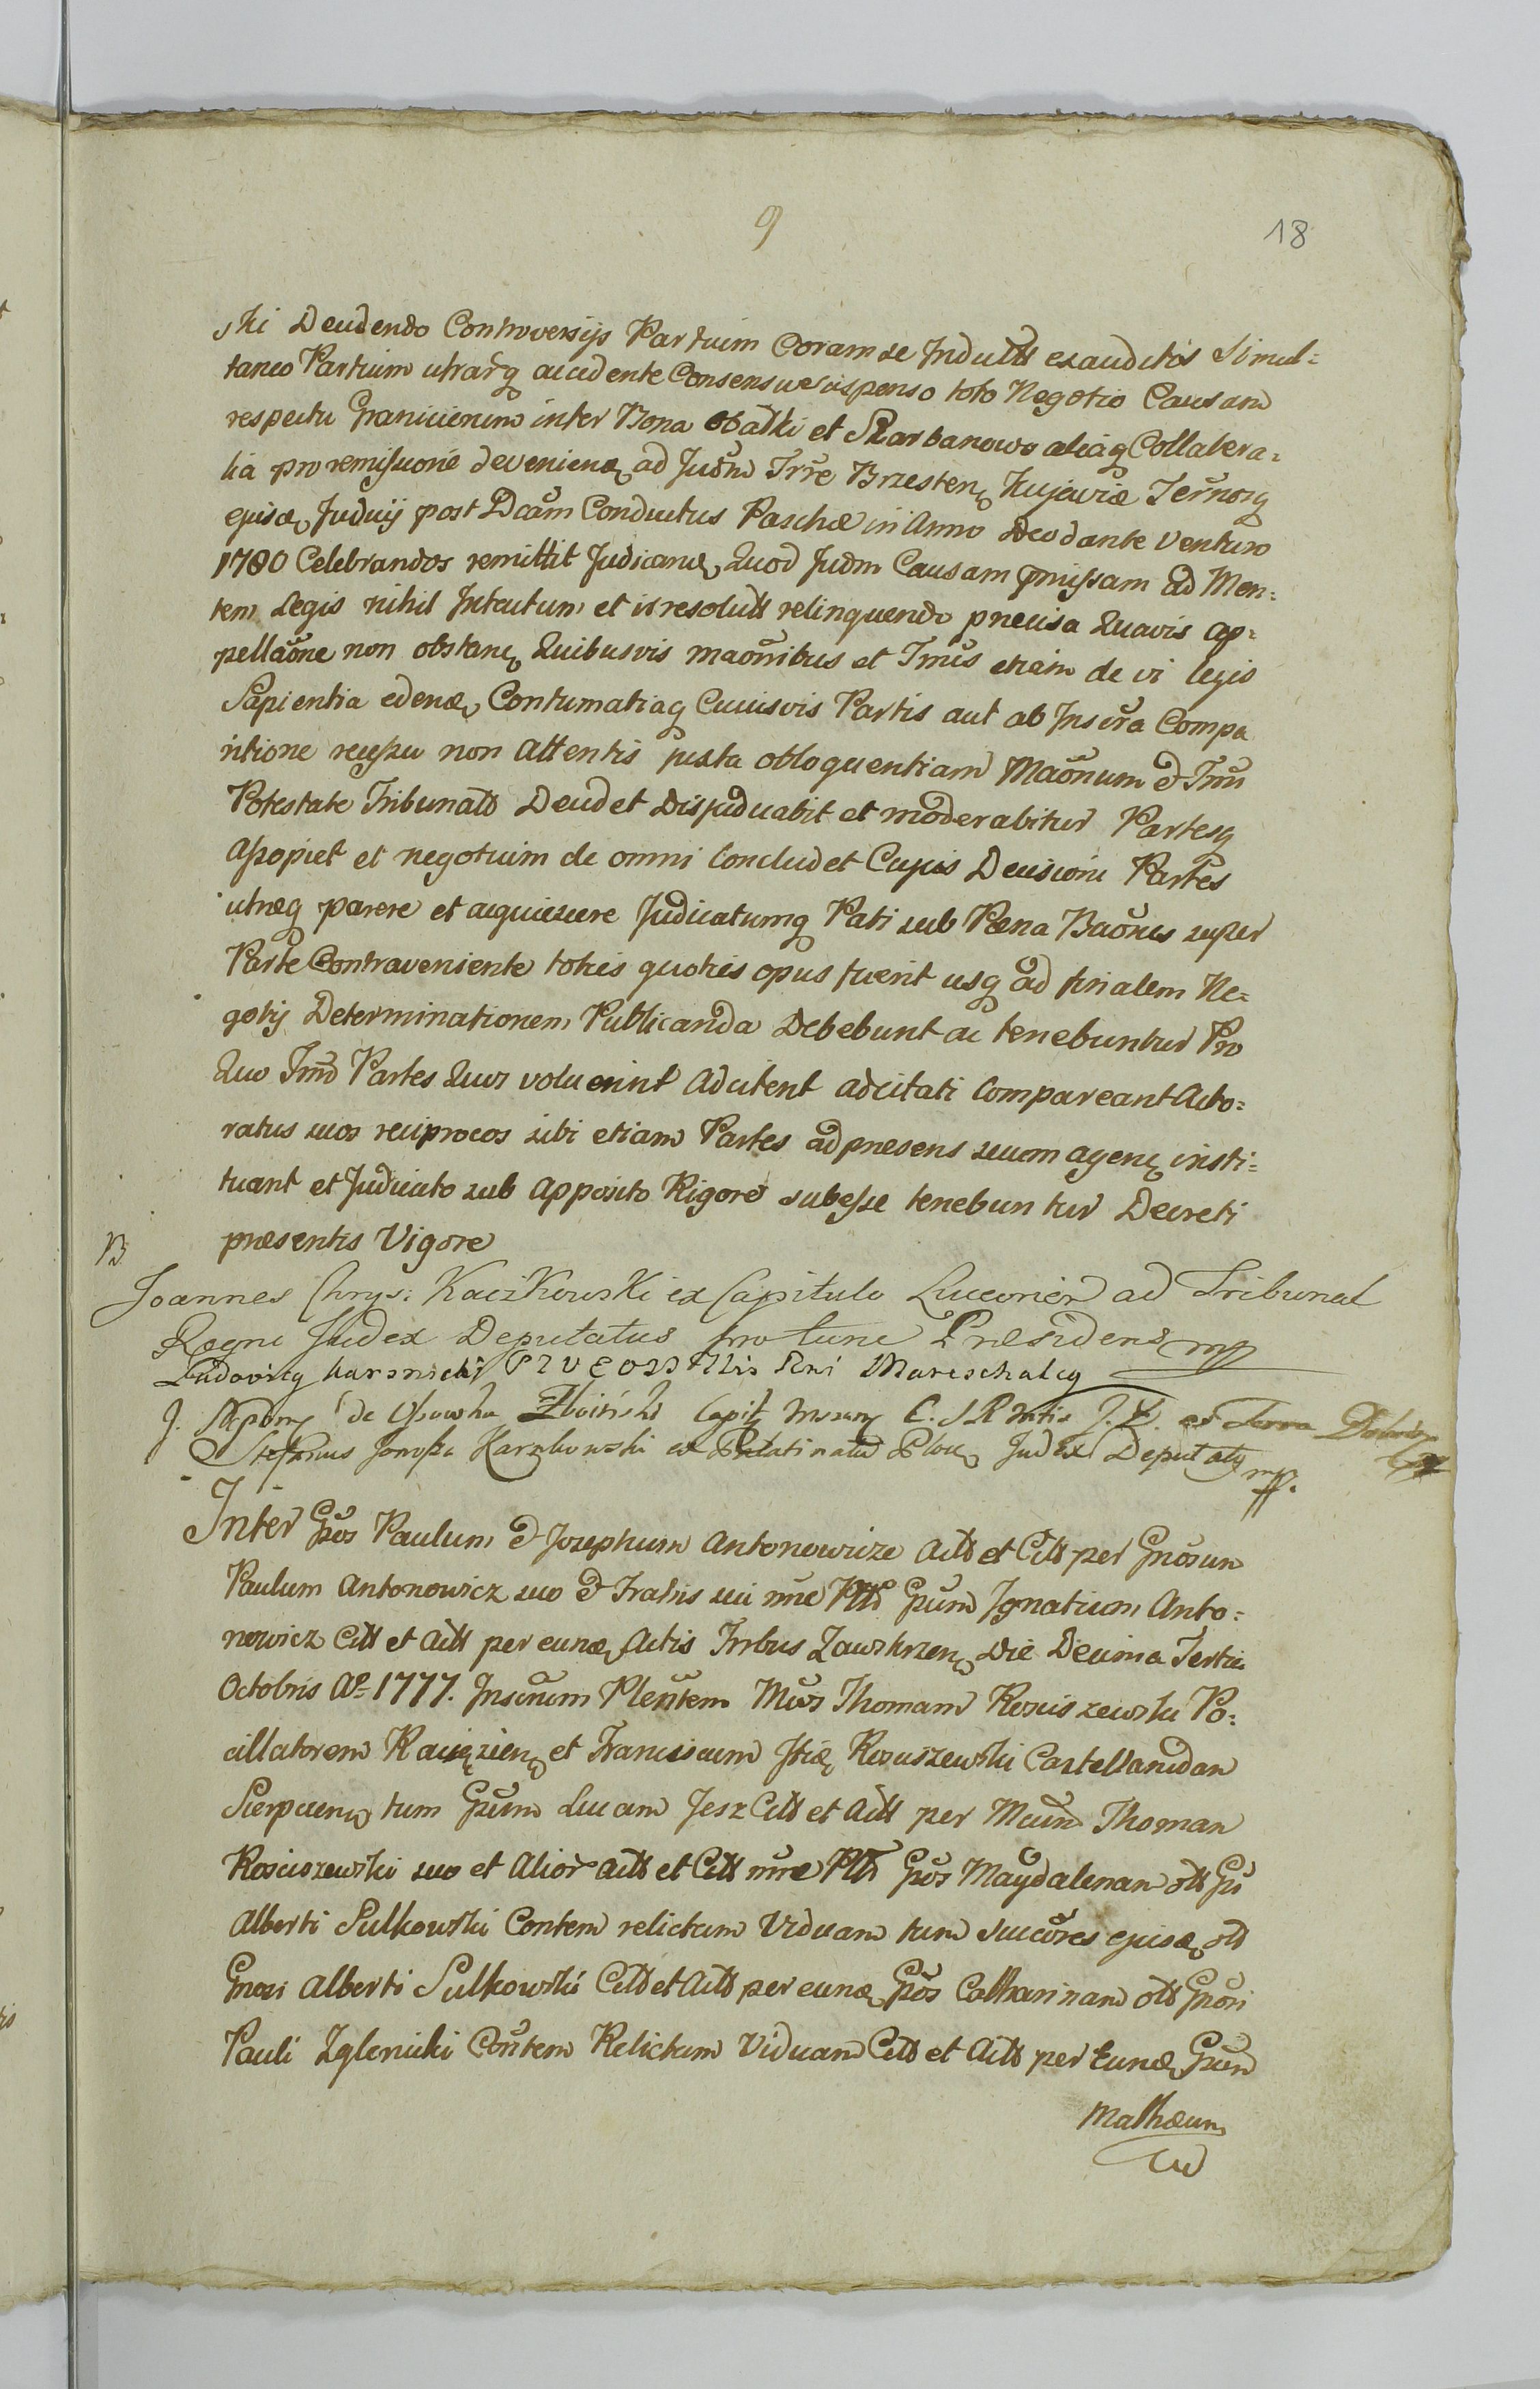 9
18
ski Decidendo Controversijs Partium Coram se Inductis exauditis Simul=
taneo Partium utrarq accedente Consensu suspenso toto Negotio Causam
respectu Granicierum inter Bona Białki et Skarbanowo aliaq Collatera=
lia pro remissione devenienę ad Judm Trre Brzestenę Kujaviæ Termosq
ejusdę Judicij post Dcam Conductus Paschæ in Anno Deo dante venturo
1780 Celebrandos remittit Judicandę, Quod Judm Causam pmissam ad Men=
tem Legis nihil Intactum et irresolutt relinquendo precisa Quavis ap=
pellaone non obstanę Quibusvis maonibus et Tmis etiam de vi legis
Sapientia edendę, Contumatiaq Cujusvis Partis aut ab Inscra Compa
ritione recessu non attentis juxta obloquentiam Maonum & Tmi
Potestate Tribunatt Decidet Disjudicabit et moderabitur Partesq
assopiet et negotium de omni Concludet Cujus Decisioni Partes
utræq parere et acquiescere Judicatumq Pati sub Pæna Baonis super
Parte Contraveniente toties quoties opus fuerit usq ad finalem Ne=
gotij Determinationem Publicanda Debebunt ac tenebuntur Pro
Quo Tmo Partes Quos voluerint adcitent adcitati Compareant Acto=
ratus suos reciprocos sibi etiam Partes ad præsens secum agenę insti=
tuant et Judicato sub apposito Rigore subesse tenebuntur Decreti
præsentis Vigore
B
Joannes Chrys: Kaczkowski ex Capitulo Luceorien ad Tribunal
Regni Judex Deputatus pro tunc Præsidens mp
Ludovicq Karsnicki Rni Mareschalcq
J. de Ossowka Zboiński Capit ex Terra Dobrin
Stephnus Junosza Karzkowski ex Palatinatu Plocę Judex Deputatq mp.
Inter Gsos Paulum & Josephum Antonowicze Actt et Citt per Gnosum
Paulum Antonowicz suo & Fratris sui nne Ptto Gsum Ignatium Anto=
nowicz Citt et Actt per eundę, Actis Trrbus Zawskrzenę Die Decima Tertia
Octobris Ao 1777. Inscrum Plentem Mcos Thomam Rosciszewski Po=
cillatorem Raciązienę et Franciscum Itidę Rosciszewski Castellanidan
Sierpcenę tum Gsum Lucam Jesz Citt et Actt per Mcum Thoman
Rosciszewski suo et Alior actt et Citt nne Ptto Gsos Magdalenam ott Gsi
Alberti Sulkowski Contem relictam Viduam tum Succores ejusdę ott
Gnosi Alberti Sulkowski Citt et Actt per eundę Gsos Catharinam ott Gnosi
Pauli Zglenicki Contem Relictam Viduam Citt et Actt per Eundę Gsum
Mathæum